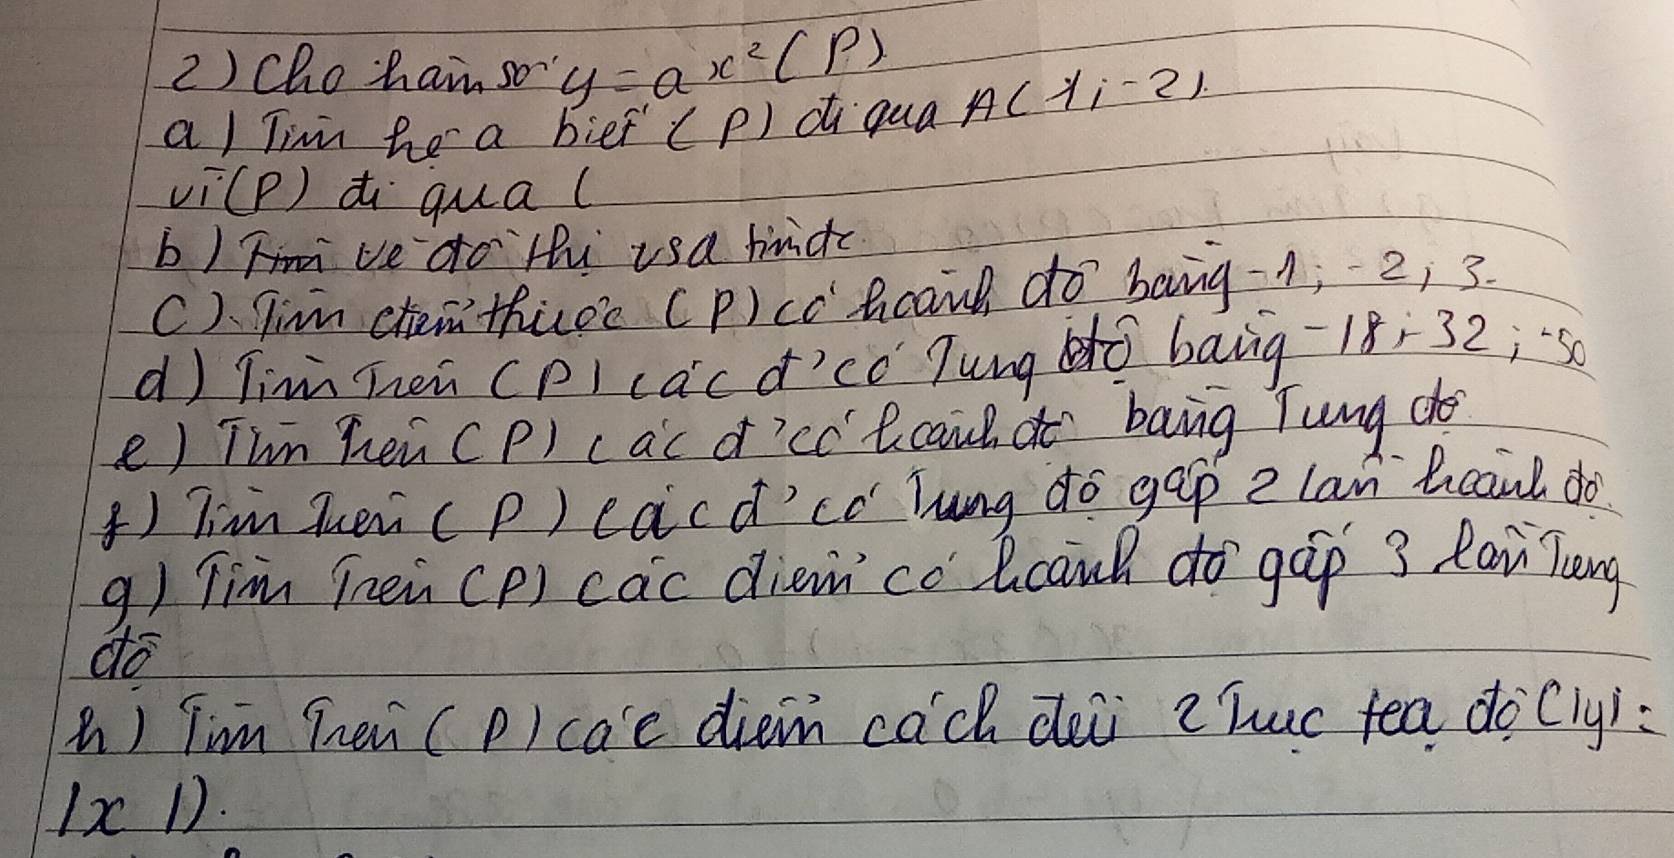 2) Cho hàm số y = ax² (P)
a) Tìm hệ a biết (P) đi qua A(1; -2).
vì (P) đi qua (
b) vẽ đồ thị vsa tìm đc
c) Tìm điểm thuộc (P) có hoành độ bằng -1; -2; 3.
d) Tìm trên (P) các đ' có Tung độ bằng -18; -32; -50
e) Tìm trên (P) các đ' có hoành độ bằng Tung độ
f) Tìm trên (P) các đ' có Tung độ gấp 2 lần hoành độ.
g) Tìm trên (P) các điểm có hoành độ gấp 3 lần Tung
độ
h) Tìm trên (P) các điểm cách đều 2 Trục tọa độ (|y| =
|x|).